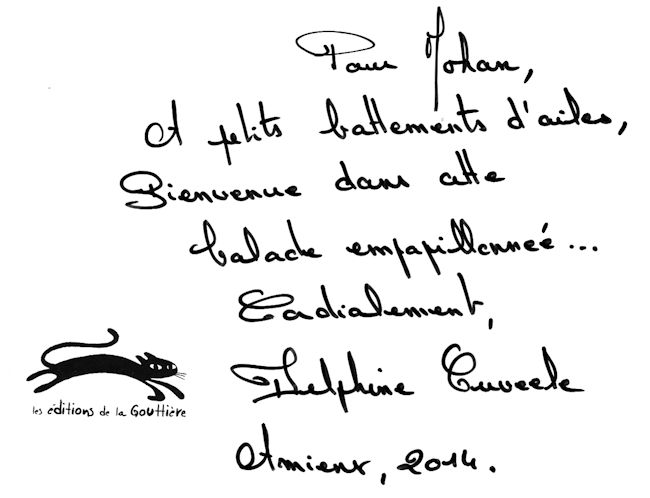 Pour Johan,
A petits battements d'ailes,
Bienvenue dans cette
balade empapillonnée...
Cordialement,
Delphine Cuveele
Amiens, 2014.
les éditions de la Gouttière